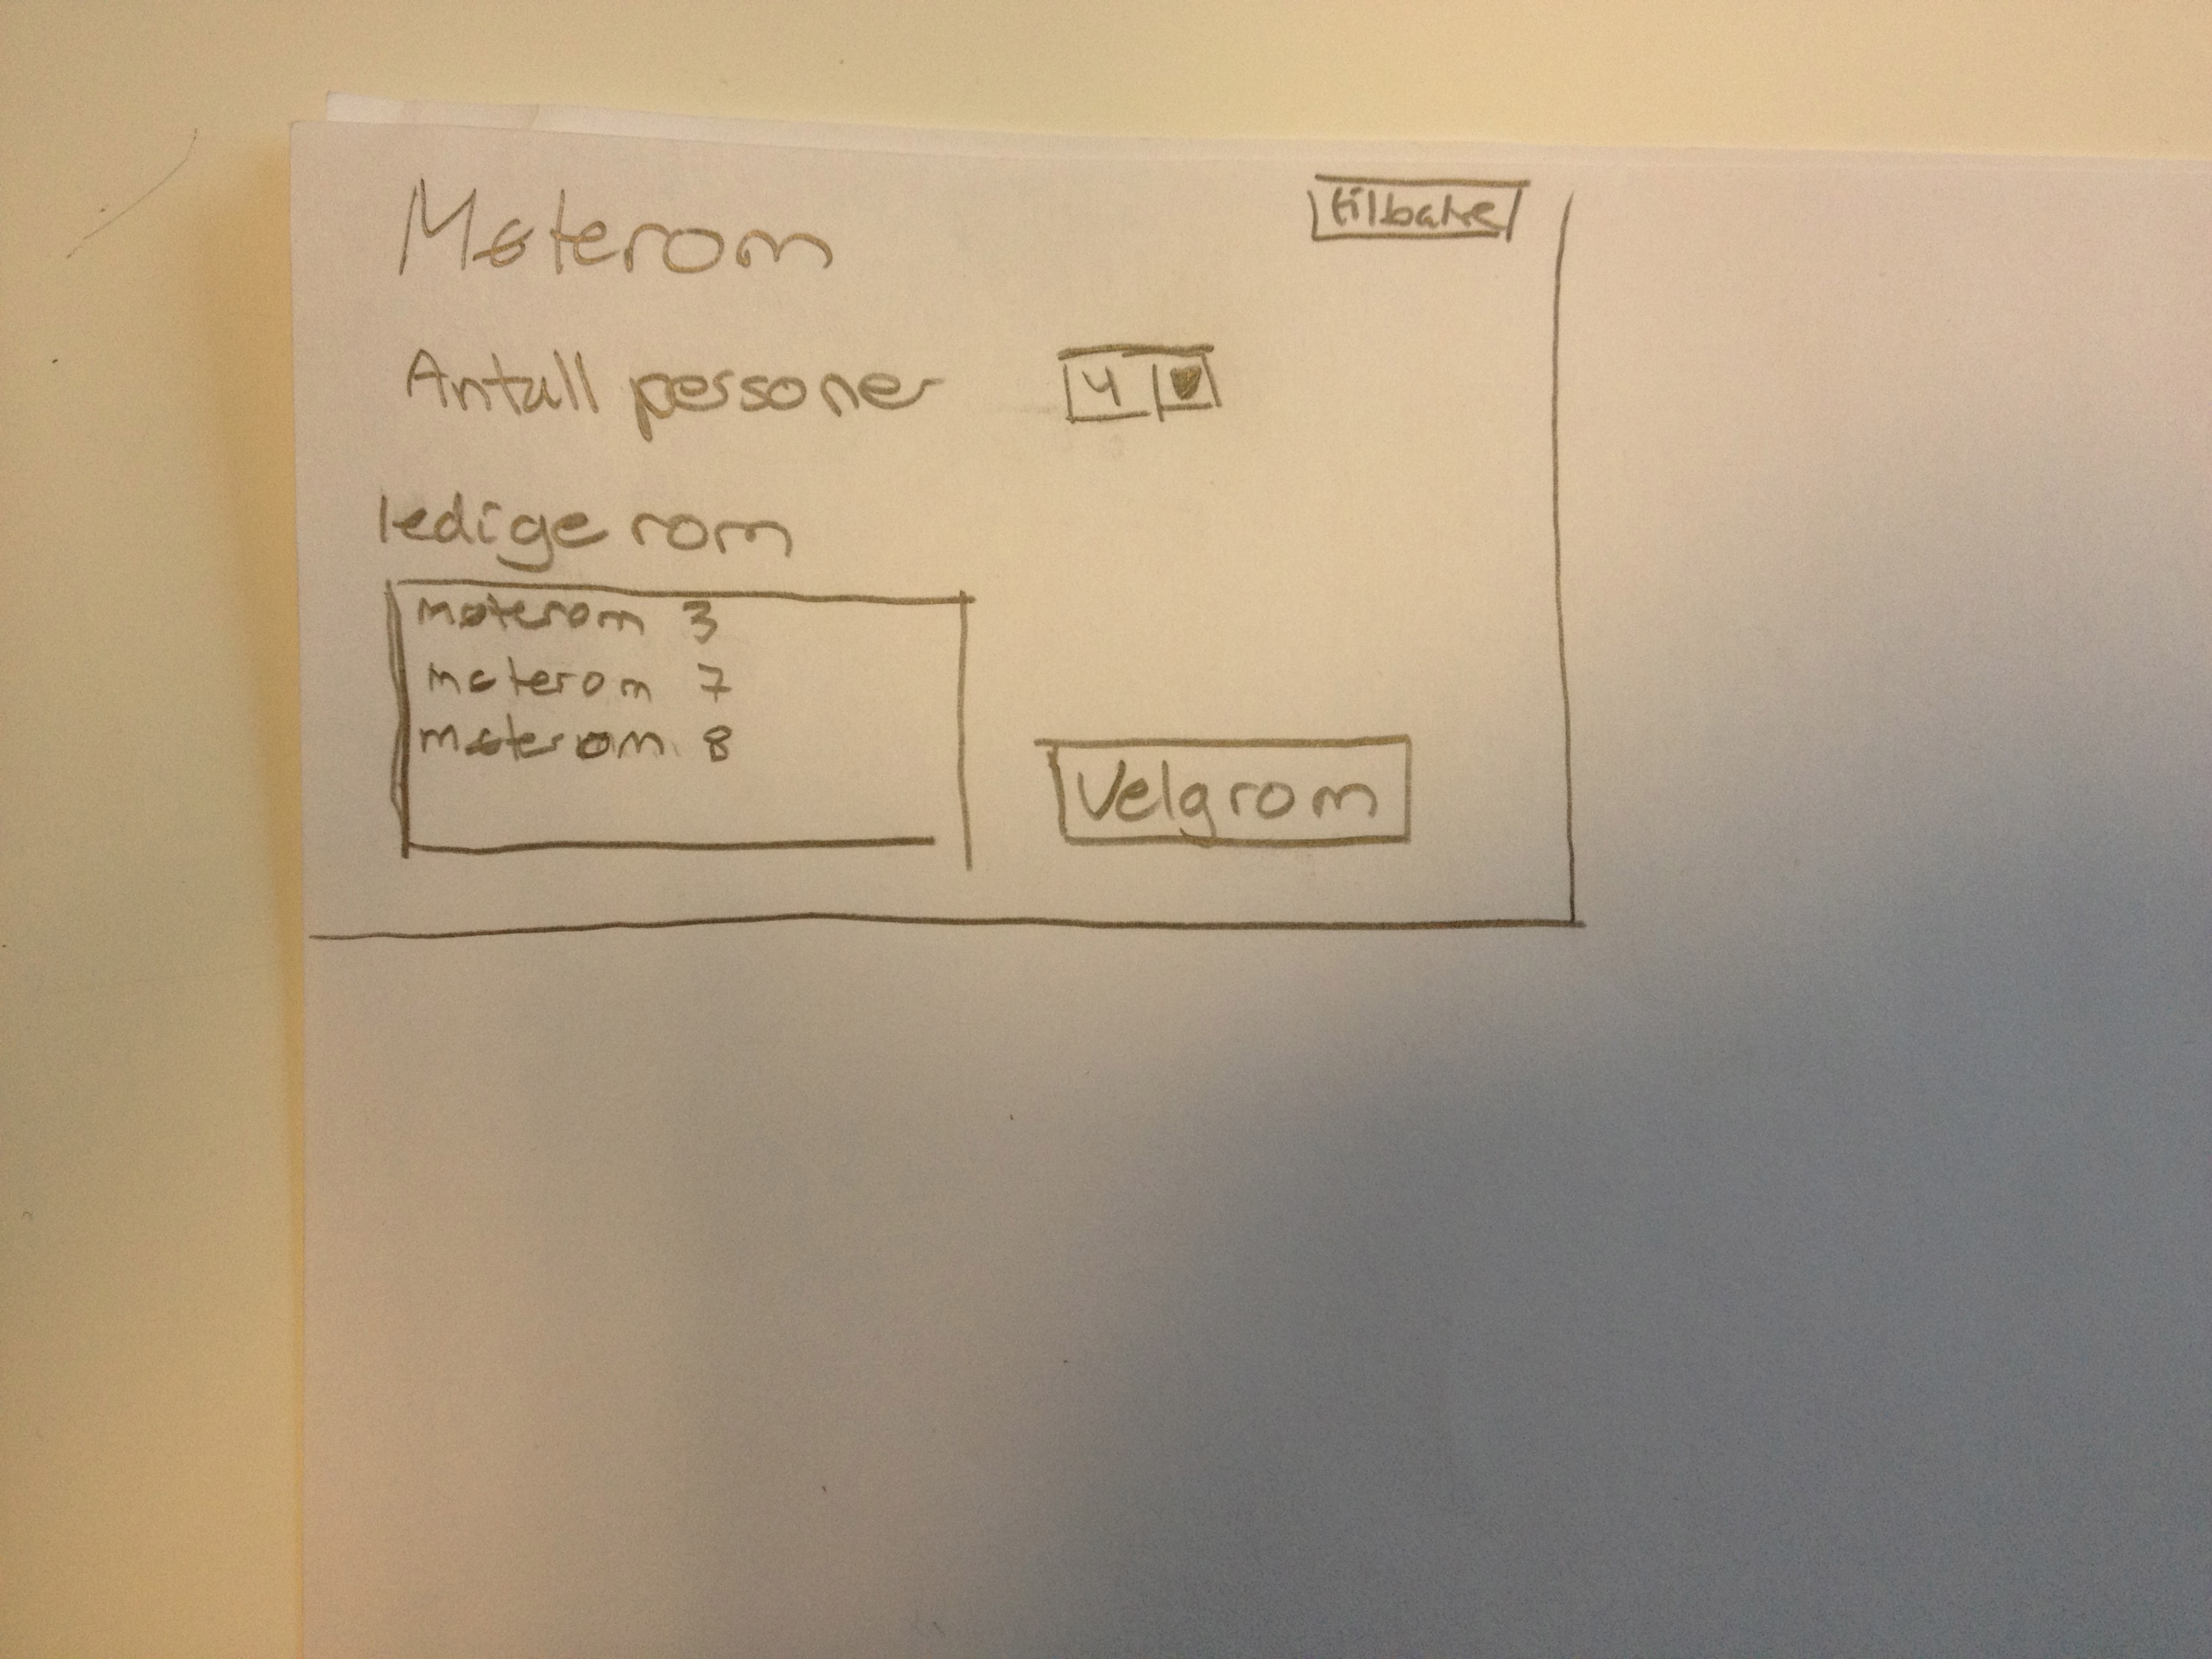 Møterom
tilbake
Antall personer
4
ledige rom
møterom 3
møterom 7
møterom 8
Velg rom